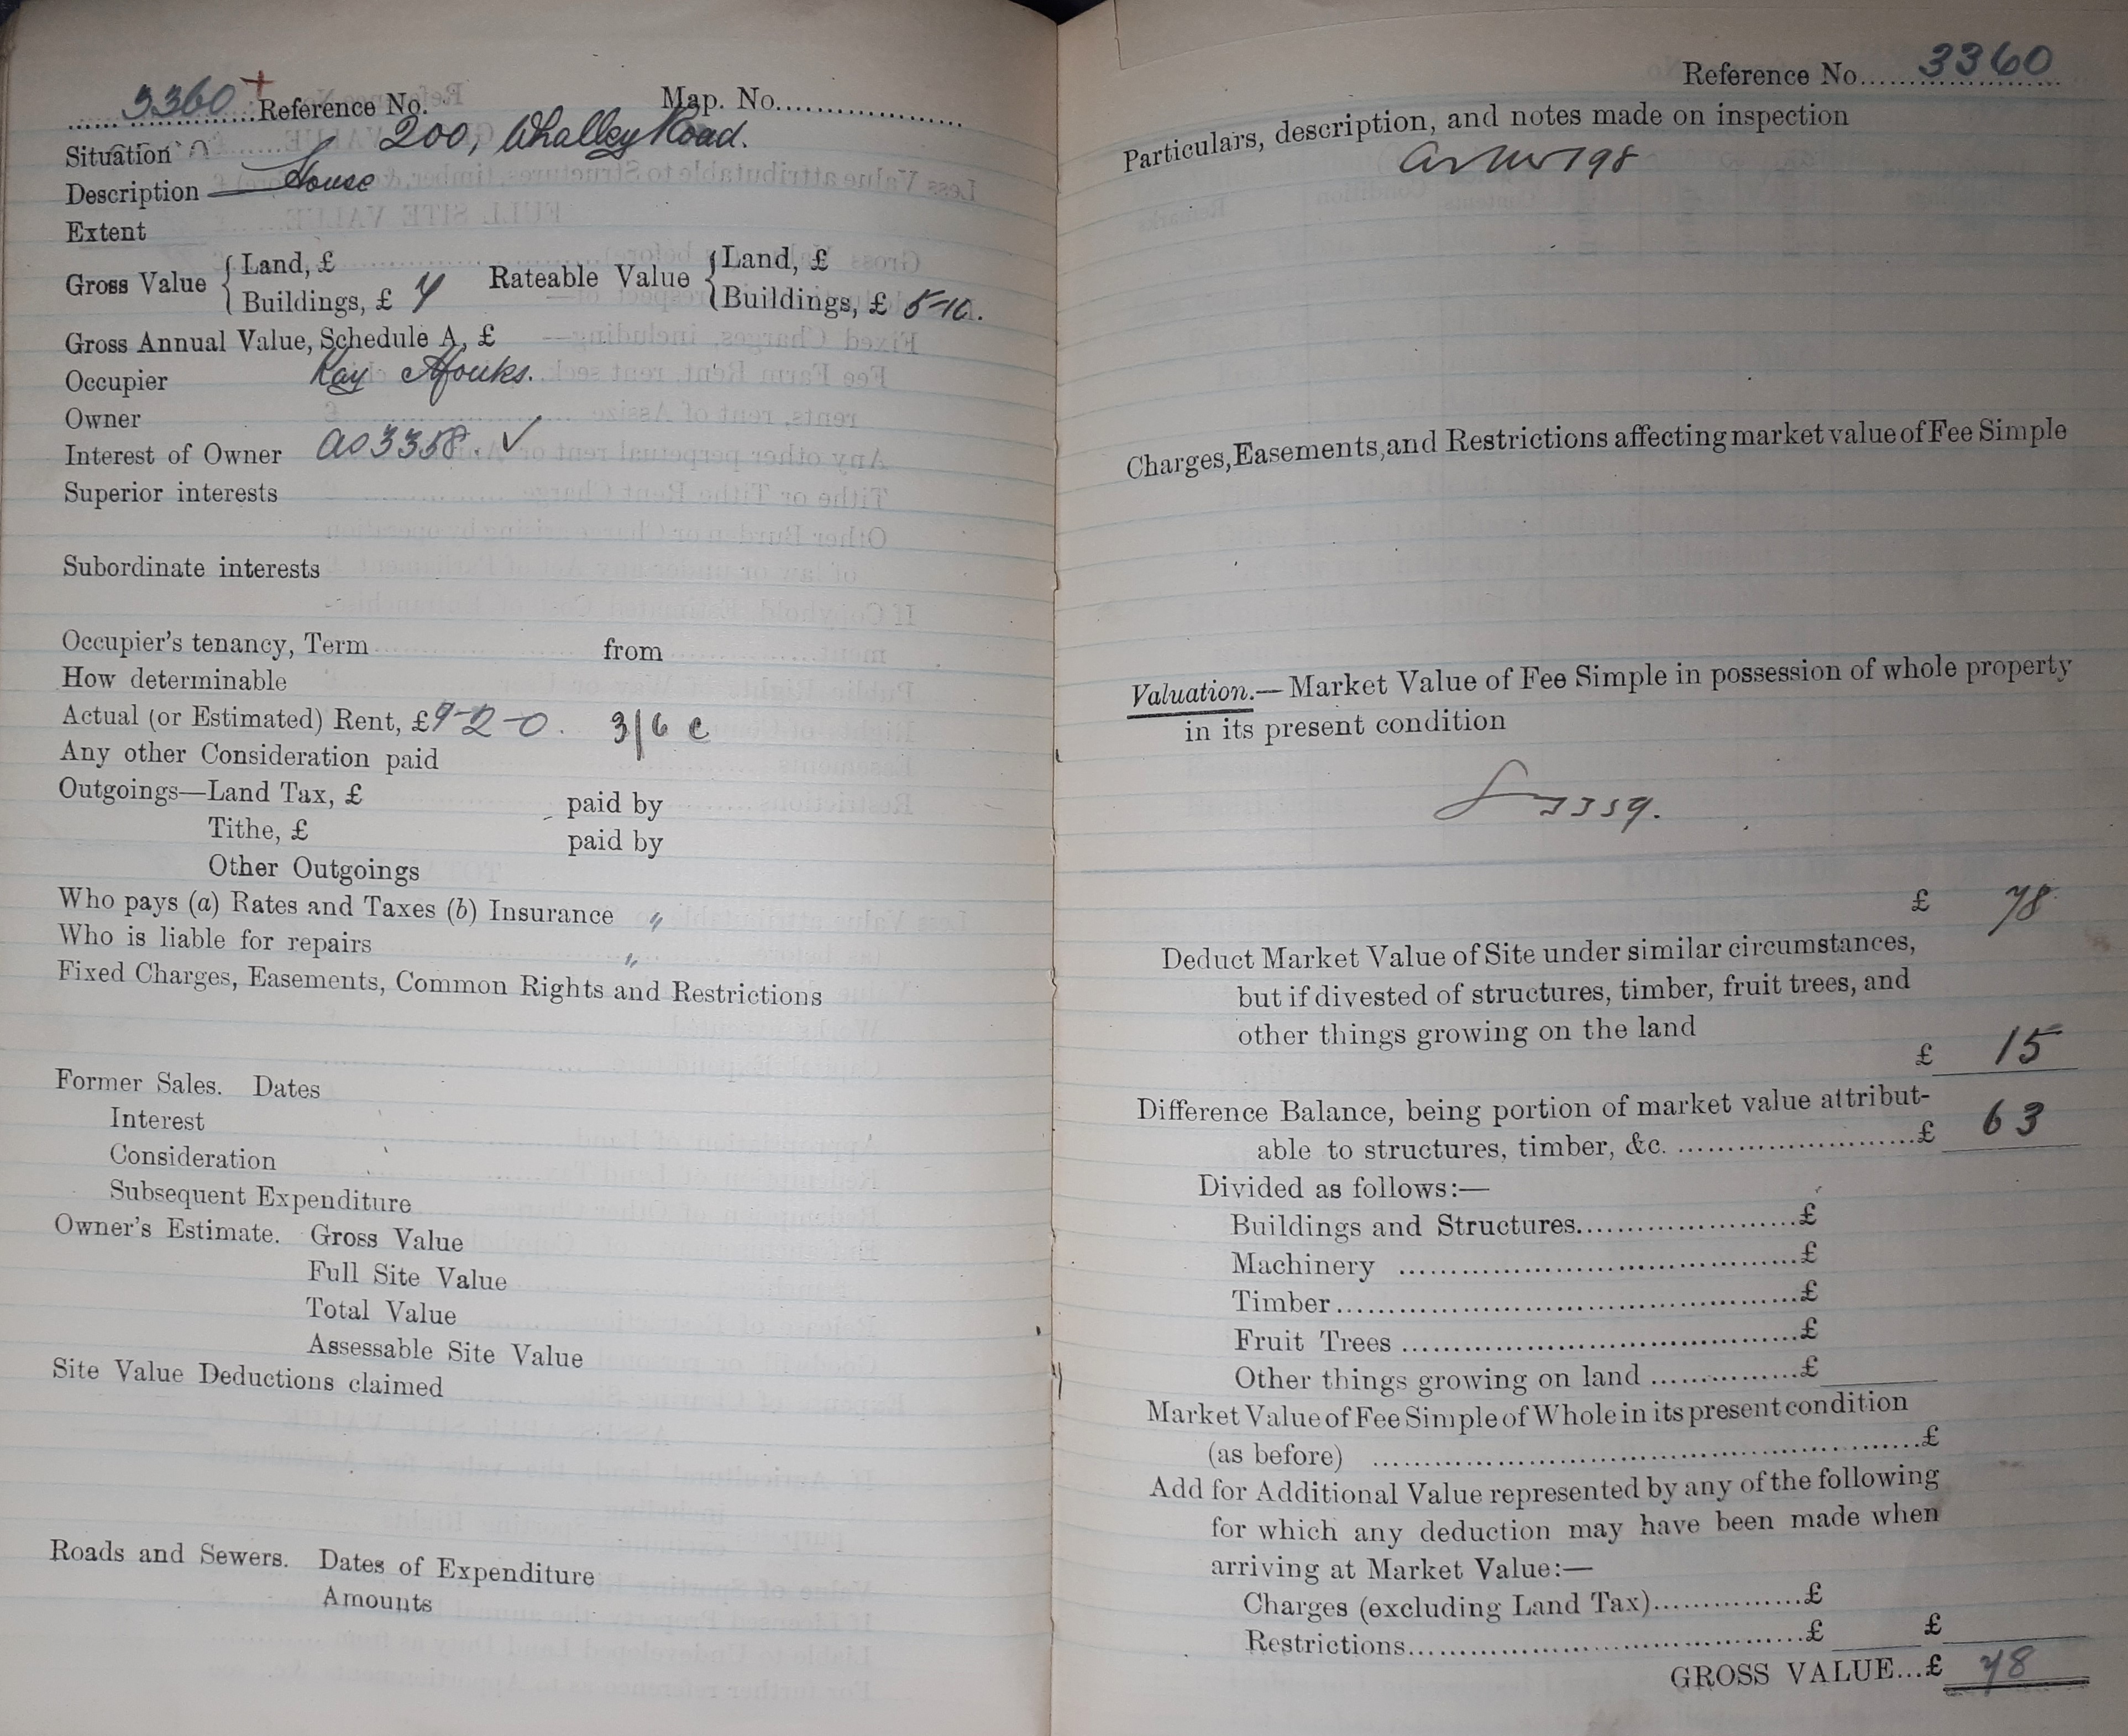 3360 + Reference No. Map. No.
Situation 200, Whalley Road.
Description House
Extent
Gross Value { Land, £ Rateable Value { Land, £
Buildings, £ 7 Buildings, £ 5-10.
Gross Annual Value, Schedule A, £
Occupier Kay
Owner
Interest of Owner ao 3358. ✓
Superior interests
Subordinate interests
Occupier's tenancy, Term from
How determinable
Actual (or Estimated) Rent, £9-2-0. 3/6 c
Any other Consideration paid
Outgoings—Land Tax, £ paid by
Tithe, £ paid by
Other Outgoings
Who pays (a) Rates and Taxes (b) Insurance "
Who is liable for repairs "
Fixed Charges, Easements, Common Rights and Restrictions
Former Sales. Dates
Interest
Consideration
Subsequent Expenditure
Owner's Estimate. Gross Value
Full Site Value
Total Value
Assessable Site Value
Site Value Deductions claimed
Roads and Sewers. Dates of Expenditure
Amounts
Reference No. 3360
Particulars, description, and notes made on inspection
198
Charges, Easements, and Restrictions affecting market value of Fee Simple
Valuation.—Market Value of Fee Simple in possession of whole property
in its present condition
3359.
£ 78
Deduct Market Value of Site under similar circumstances,
but if divested of structures, timber, fruit trees, and
other things growing on the land
£ 15
Difference Balance, being portion of market value attribut-
able to structures, timber, &c. £ 63
Divided as follows:—
Buildings and Structures £
Machinery £
Timber £
Fruit Trees £
Other things growing on land £
Market Value of Fee Simple of Whole in its present condition
(as before) £
Add for Additional Value represented by any of the following
for which any deduction may have been made when
arriving at Market Value:—
Charges (excluding Land Tax) £
Restrictions £ £
GROSS VALUE...£ 78